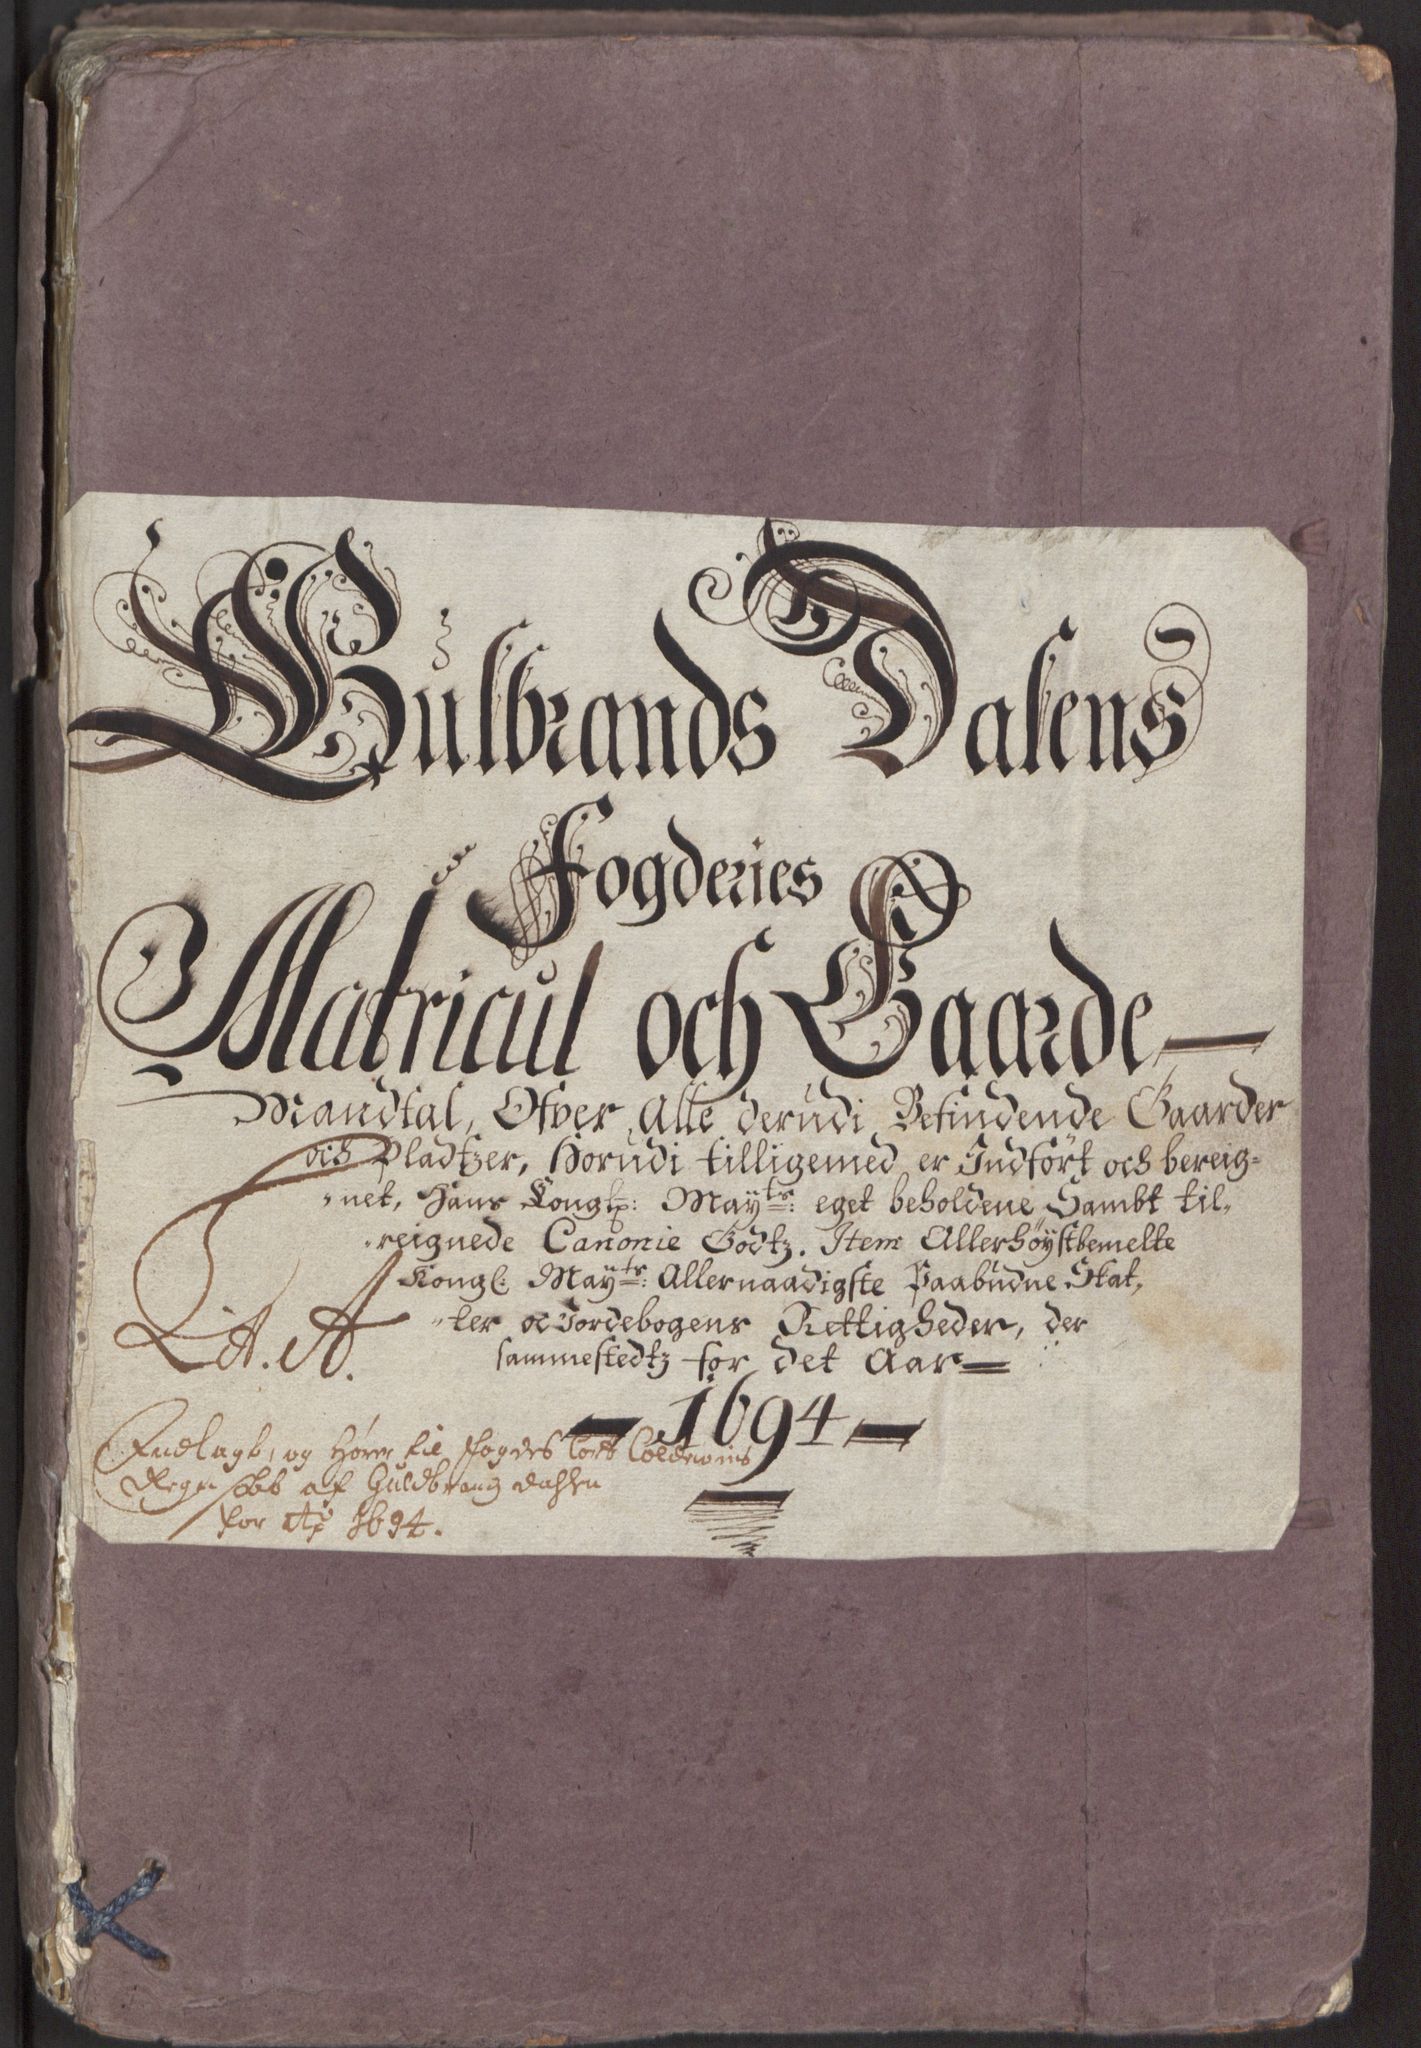 Gulbrands Dalens
Fogderies
Matricul och Gaarde
Mandtal, Ofver Alle derudi Befindende Gaarder
och Pladtzer, Horudi tilligemed er Indført och bereig=
net, Hans Kongl: Mayts: eget beholdene Sambt til,
reignede Canonie Godtz. Item Allerhøystbemelte
Kongl: Mayts: Allernaadigste Paabudne Skat,
ter oc Jordebogens Rettigheder, der
sammestedtz for det Aar
1694
Lit. A.
Indlagt, og hører til Fogdes
Regenskb af Guldbrandz dahlen
for Ao 1694.